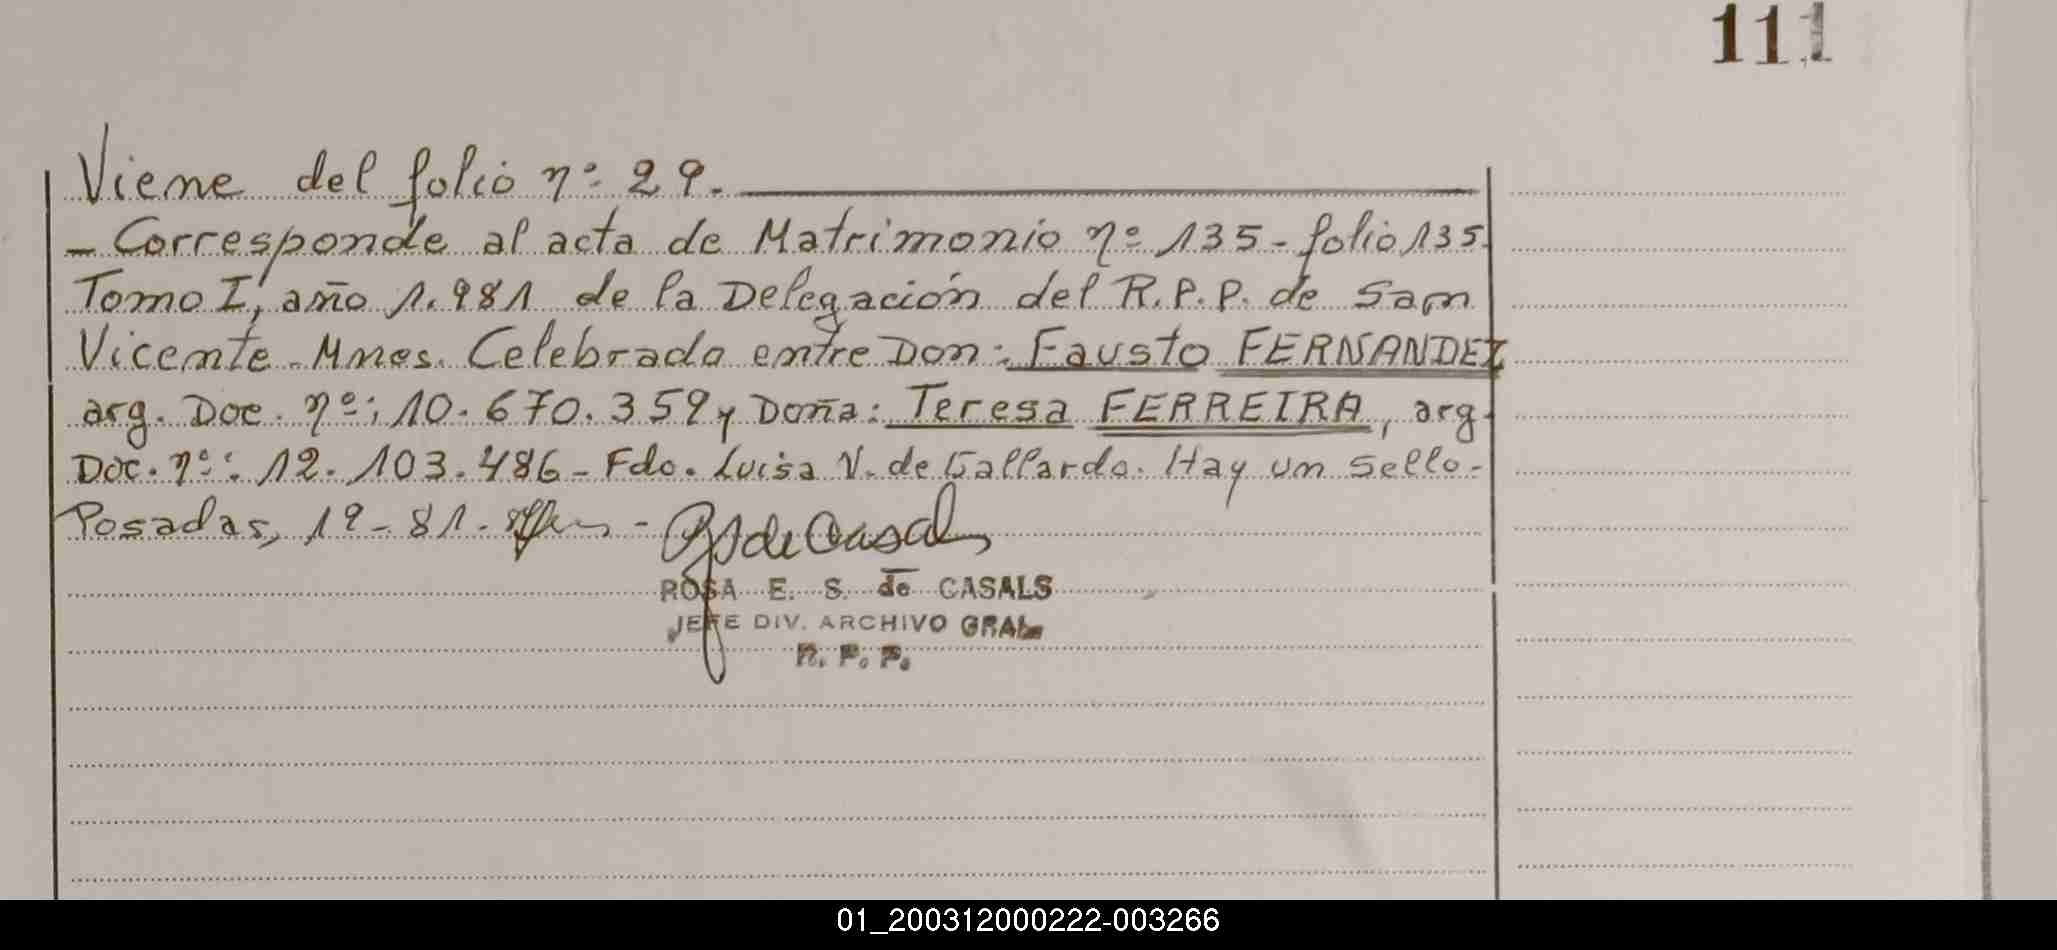 111
Viene del folio nº 29.
- Corresponde al acta de Matrimonio nº 135 - folio 135.
Tomo I, año 1.981 de la Delegación del R.P.P. de San
Vicente - Mnes. Celebrado entre Don: Fausto FERNANDEZ
arg. Doc. nº: 10.670.359 y Doña: Teresa FERREIRA, arg.
Doc. nº: 12.103.486 - Fdo. Luisa V. de Gallardo. Hay un sello -
Posadas, 19 - 81 -
ROSA E. S. de CASALS
JEFE DIV. ARCHIVO GRAL
R. P. P.
01_200312000222-003266